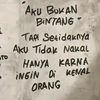 "AKU BUKAN
BINTANG"
TAPI SETIDAKNYA
AKU TIDAK NAKAL
HANYA KARNA
INGIN DI KENAL
ORANG